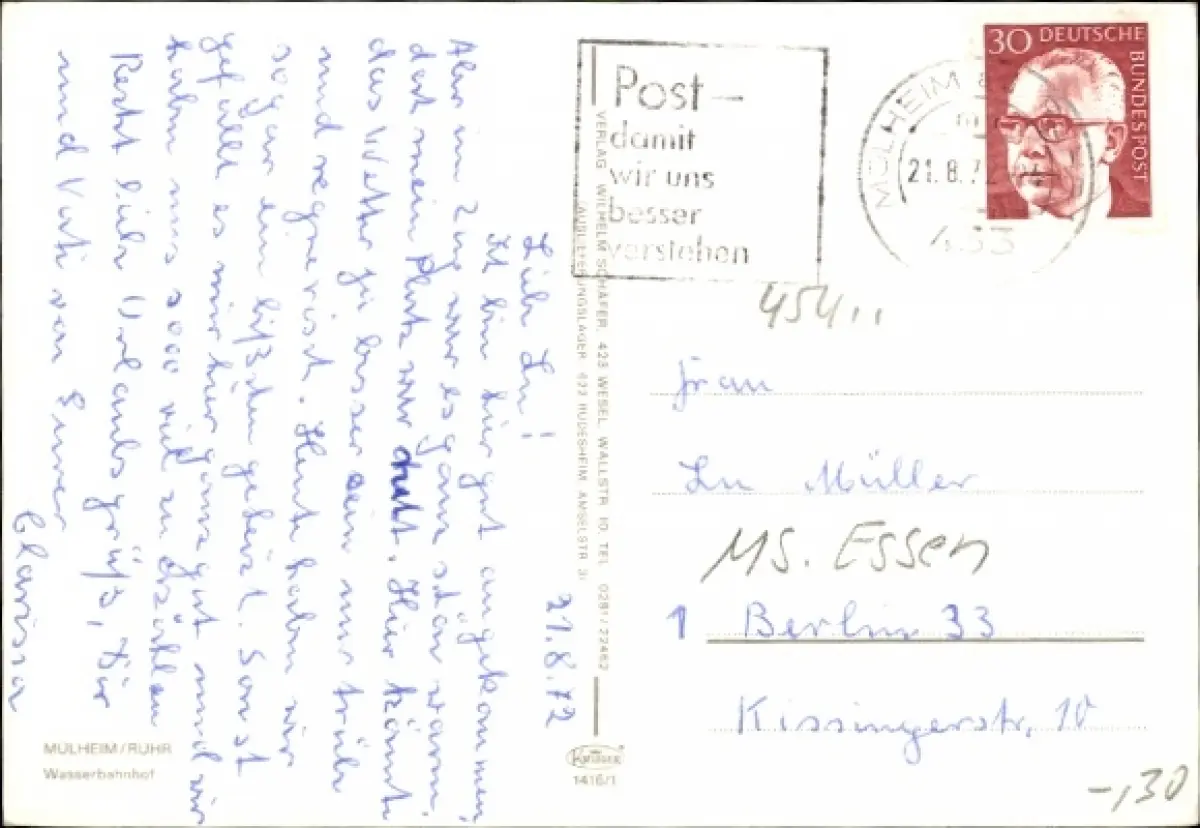 21.8.72
Liebe Lu!
Ich bin hier gut angekommen.
Aber im Zug war es ganz schön warm,
dort mein Platz war
das Wetter ja besser sein nur trüb
und regnerisch. Heute haben wir
sogar ein bißchen geheizt. Sonst
gefällt es mir hier ganz gut und wir
haben uns sooo viel zu erzählen
Recht liebe Urlaubsgrüße, Dir
und Vati von Eurer
Clarissa
MÜLHEIM/RUHR
Wasserbahnhof
VERLAG WILHELM SCHÄFER, 423 WESEL, WALLSTR. 10, TEL. 0281/22462
(AUSLIEFERUNGSLAGER 622 RÜDESHEIM, AMSELSTR. 3)
Krüger
1416/1
Post –
damit
wir uns
besser
verstehen
MÜLHEIM
21.8.72
433
30 DEUTSCHE
BUNDESPOST
454..
Frau
Lu Müller
MS. Essen
1 Berlin 33
Kissingerstr. 10
-,30